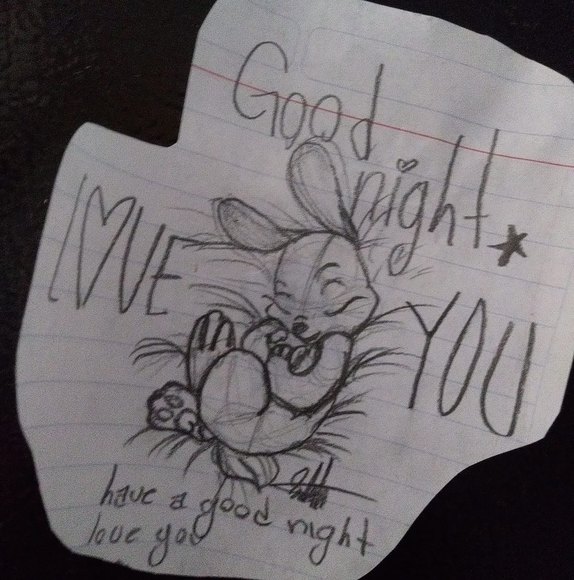 Good
night
LOVE
YOU
have a good night
love you